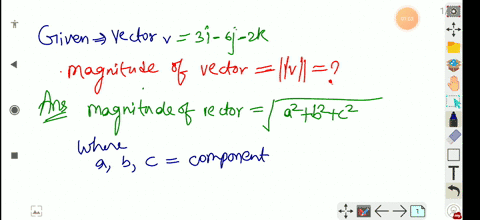 Given ⇒ vector v = 3i - 6j - 2k
. magnitude of vector = ||v|| = ?
Ans magnitude of vector = √a²+b²+c²
where
a, b, c = component